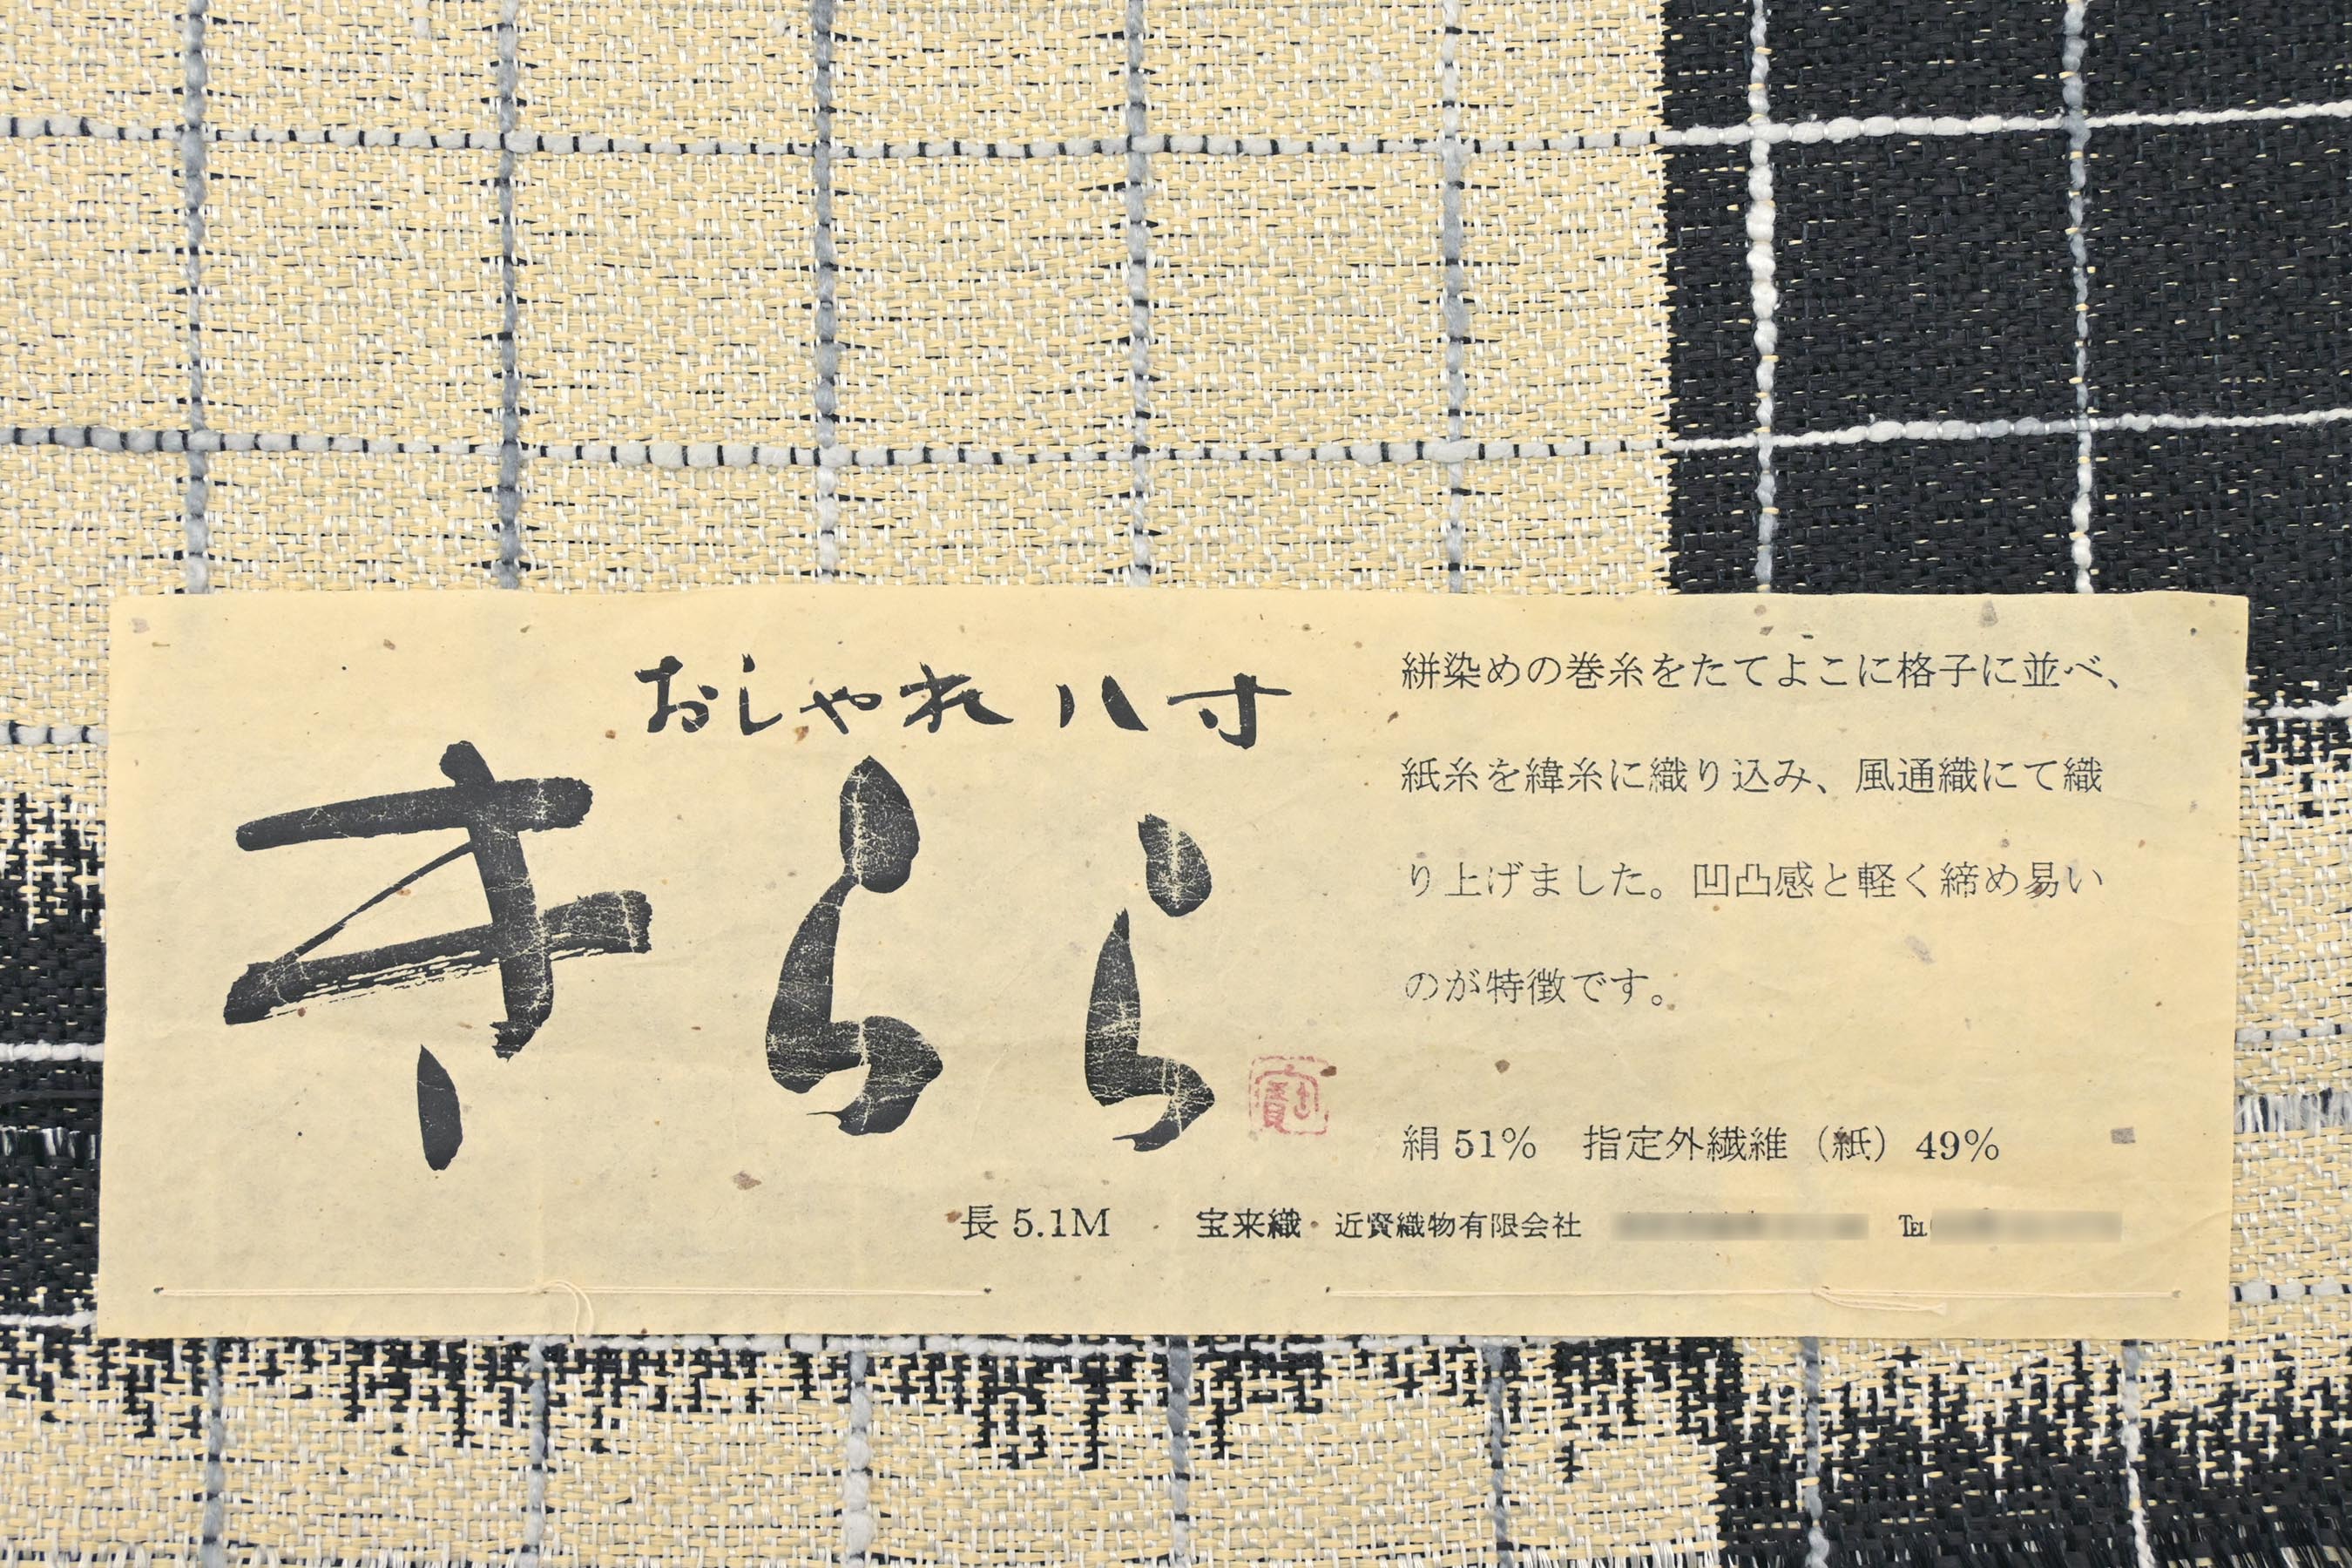 おしゃれ八寸
きらら
絣染めの巻糸をたてよこに格子に並べ、
紙糸を緯糸に織り込み、風通織にて織
り上げました。凹凸感と軽く締め易い
のが特徴です。
絹 51% 指定外繊維（紙）49%
長 5.1M 宝来織 近賢織物有限会社 ℡